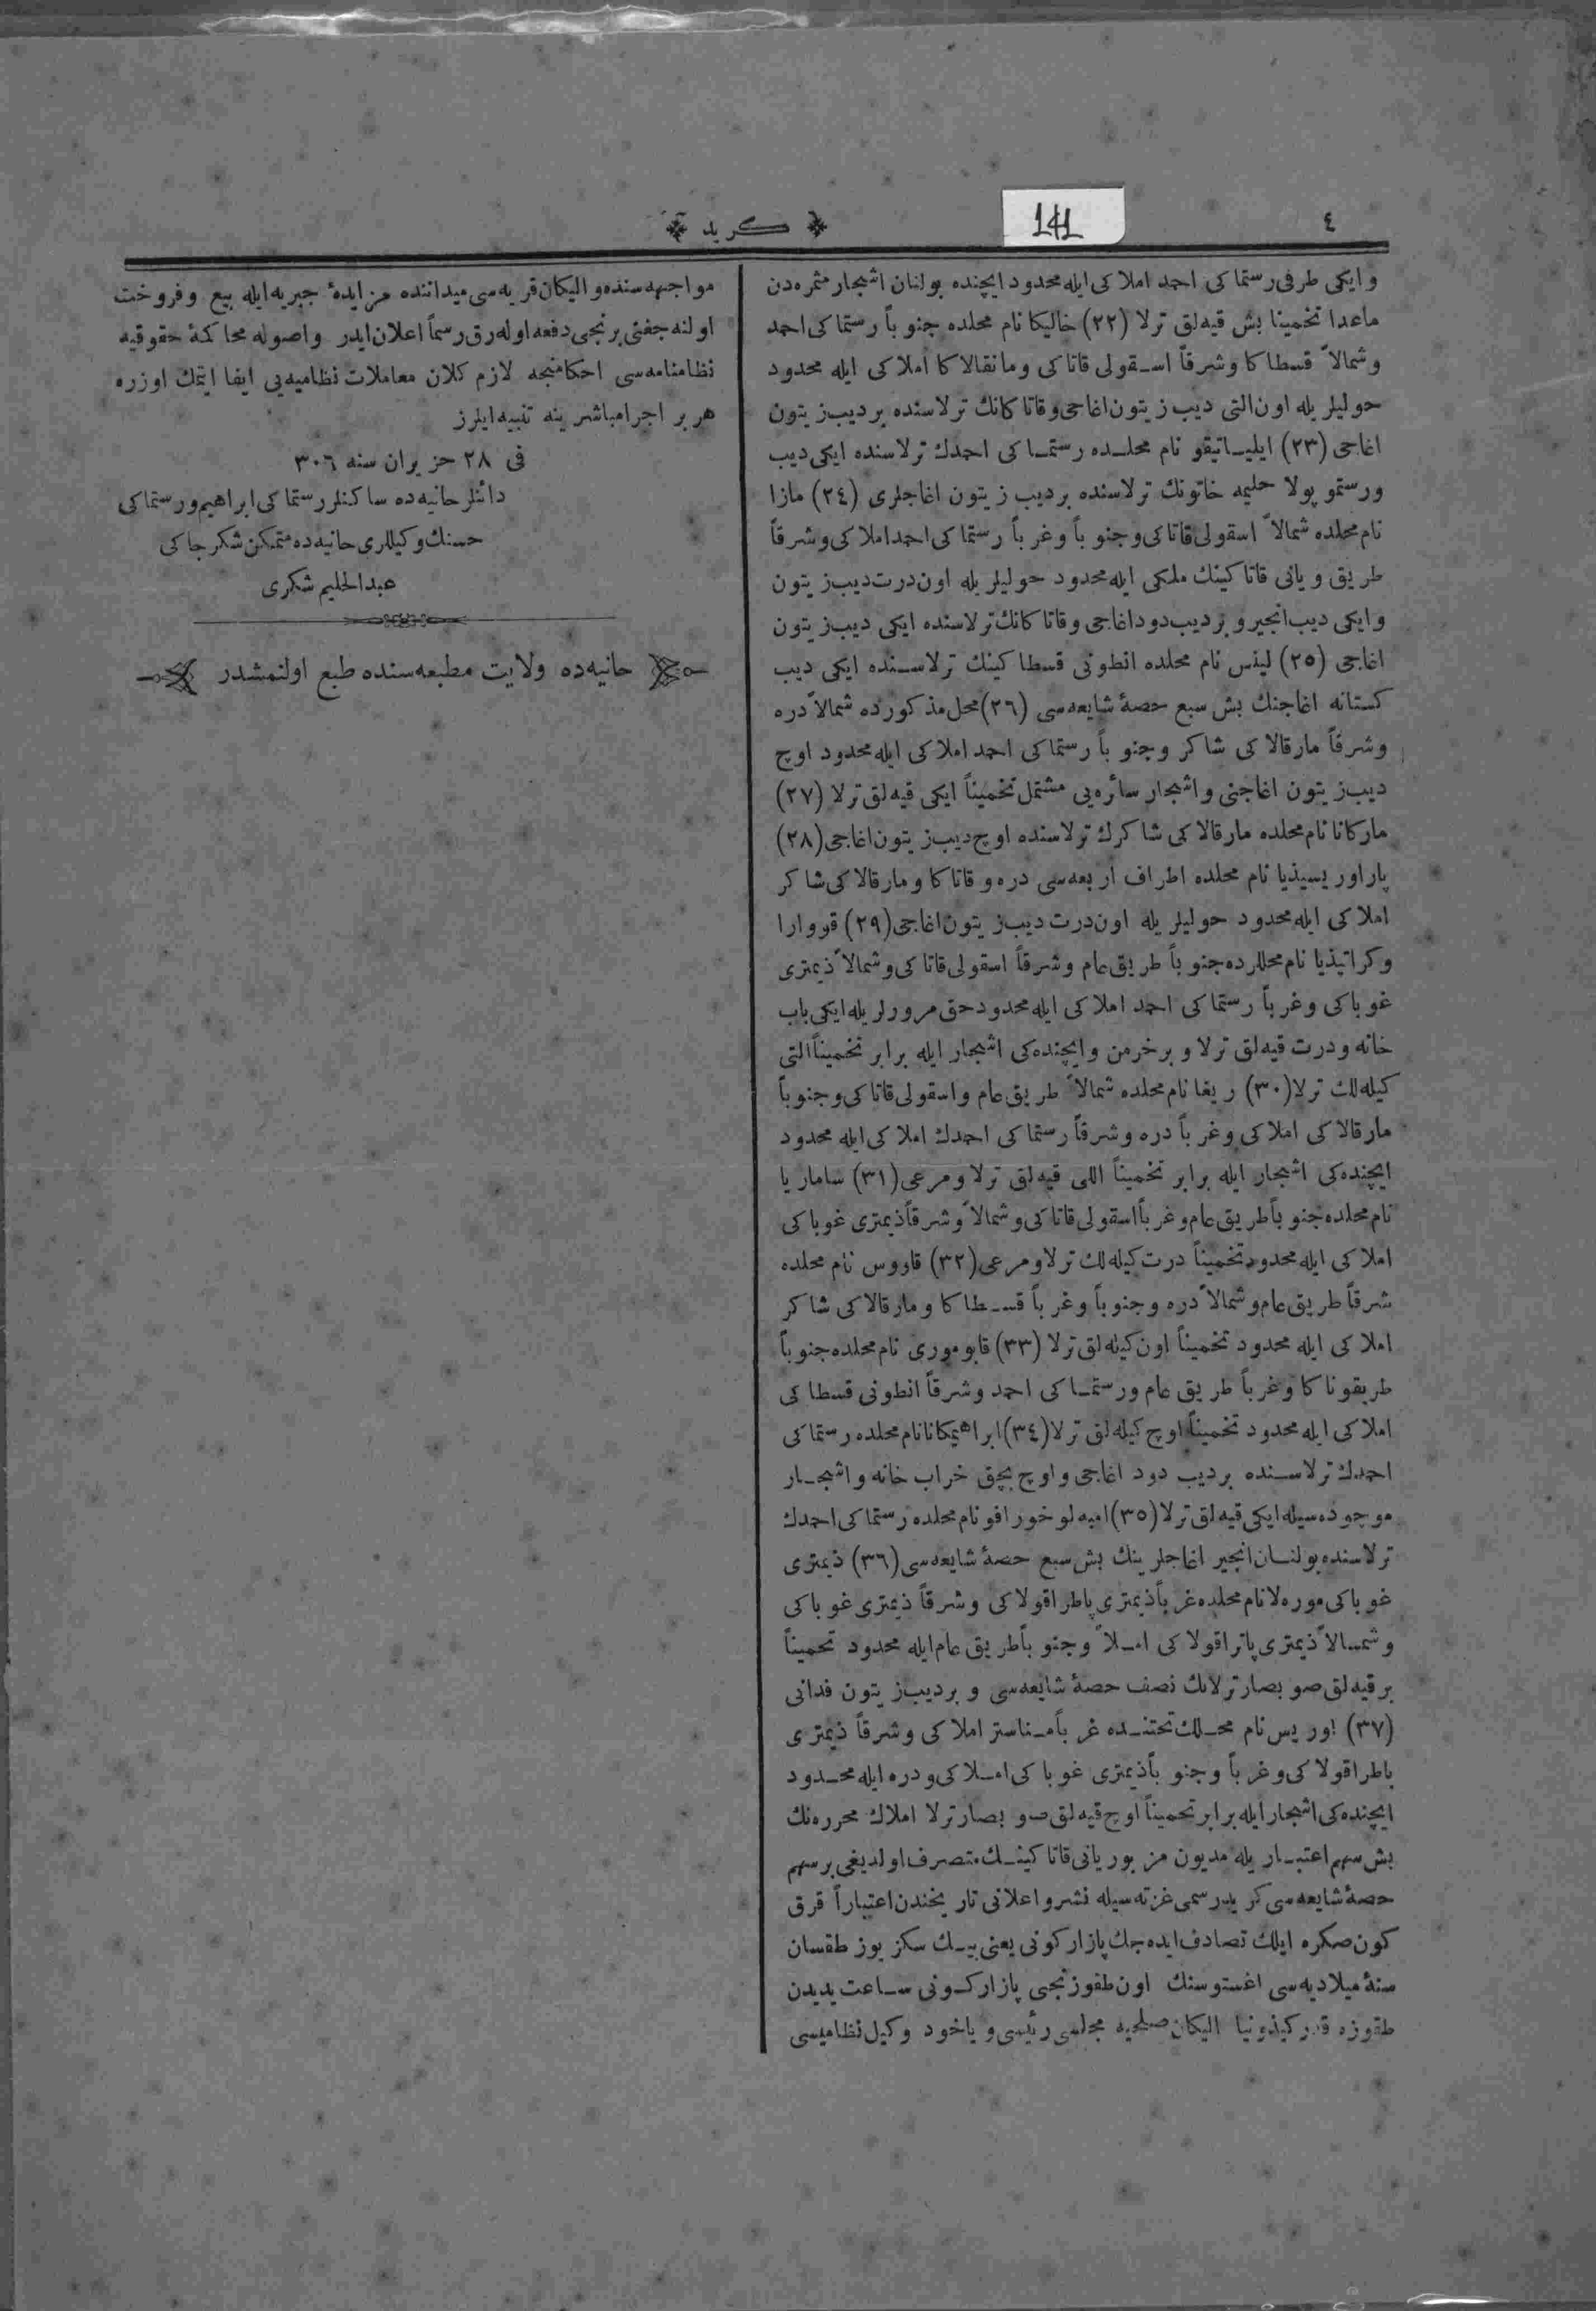 ٤
141
كريد
وايكى طرفى رستماكى احمد املاكى ايله محدود ايچنده بولنان اشجار مثمره‌دن
ماعدا تخمينا بش قيه‌لق ترلا (٢٢) خاليكا نام محلده جنوباً رستماكى احمد
وشمالاً قسطاكا وشرقاً اسقولى قاتاكى ومانقالاكا املاكى ايله محدود
حوليلريله اون‌التى ديب زيتون اغاجى وقاتاكانك ترلاسنده برديب زيتون
اغاجى (٢٣) ايلياتيقو نام محلده رستماكى احمدك ترلاسنده ايكى ديب
ورستمو پولا حليمه خاتونك ترلاسنده برديب زيتون اغاجلرى (٢٤) مازا
نام محلده شمالاً اسقولى قاتاكى وجنوباً وغرباً رستماكى احمد املاكى وشرقاً
طريق ويانى قاتاكينك ملكى ايله محدود حوليلريله اون‌درت ديب زيتون
وايكى ديب انجير وبرديب دود اغاجى وقاتاكانك ترلاسنده ايكى ديب زيتون
اغاجى (٢٥) لينس نام محلده انطونى قسطاكينك ترلاسنده ايكى ديب
كستانه اغاجنك بش سبع حصهٔ شايعه‌سى (٢٦) محل مذكورده شمالاً دره
وشرقاً مارقالاكى شاكر وجنوباً رستماكى احمد املاكى ايله محدود اوچ
ديب زيتون اغاجنى واشجار سائره‌يى مشتمل تخميناً ايكى قيه‌لق ترلا (٢٧)
ماركانا نام محلده مارقالاكى شاكرك ترلاسنده اوچ ديب زيتون اغاجى (٢٨)
پاراوريسيذيا نام محلده اطراف اربعه‌سى دره و قاتاكا ومارقالاكى شاكر
املاكى ايله محدود حوليلريله اون‌درت ديب زيتون اغاجى (٢٩) قووارا
وكراتيذيا نام محللرده جنوباً طريق عام وشرقاً اسقولى قاتاكى وشمالاً ذيمترى
غوباكى وغرباً رستماكى احمد املاكى ايله محدود حق مرورلريله ايكى باب
خانه ودرت قيه‌لق ترلا وبرخرمن وايچنده‌كى اشجار ايله برابر تخميناً التى
كيله‌لك ترلا (٣٠) ريغا نام محلده شمالاً طريق عام واسقولى قاتاكى وجنوباً
مارقالاكى املاكى وغرباً دره وشرقاً رستماكى احمدك املاكى ايله محدود
ايچنده‌كى اشجار ايله برابر تخميناً اللى قيه‌لق ترلا ومرعى (٣١) ساماريا
نام محلده جنوباً طريق عام وغرباً اسقولى قاتاكى وشمالاً وشرقاً ذيمترى غوباكى
املاكى ايله محدود تخميناً درت كيله‌لك ترلا ومرعى (٣٢) قاووس نام محلده
شرقاً طريق عام وشمالاً دره وجنوباً وغرباً قسطاكا ومارقالاكى شاكر
املاكى ايله محدود تخميناً اون كيله‌لق ترلا (٣٣) قابوموری نام محلده جنوباً
طريقوناكا وغرباً طريق عام ورستماكى احمد وشرقاً انطونى قسطاكى
املاكى ايله محدود تخميناً اوچ كيله‌لق ترلا (٣٤) ابراهيمكانا نام محلده رستماكى
احمدك ترلاسنده برديب دود اغاجى واوچ بچق خراب خانه واشجار
موجوده‌سيله ايكى قيه‌لق ترلا (٣٥) امبه‌لوخورافو نام محلده رستماكى احمدك
ترلاسنده بولنان انجير اغاجلرينك بش سبع حصهٔ شايعه‌سى (٣٦) ذيمترى
غوباكى موره‌لا نام محلده غرباً ذيمترى پاطراقولاكى وشرقاً ذيمترى غوباكى
وشمالاً ذيمترى پاتراقولاكى املاً وجنوباً طريق عام ايله محدود تخميناً
برقيه‌لق صوبصار ترلانك نصف حصهٔ شايعه‌سى و برديب زيتون فدانى
(٣٧) اوريس نام محلك تحتنده غرباً مناستر املاكى وشرقاً ذيمترى
پاطراقولاكى وغرباً وجنوباً ذيمترى غوباكى املاكى ودره ايله محدود
ايچنده‌كى اشجار ايله برابر تخميناً اوچ قيه‌لق صوبصار ترلا املاك محرره‌نك
بش سهم اعتباريله مديون مزبور يانى قاتاكينك متصرف اولديغى برسهم
حصهٔ شايعه‌سى كريد رسمى غزته‌سيله نشر واعلانى تاريخندن اعتباراً قرق
كون صكره ايلك تصادف ايده‌جك پازاركونى يعنى بيك سكز يوز طقسان
سنهٔ ميلاديه‌سى اغستوسنك اون طقوزنجى پازاركونى ساعت يديدن
طقوزه قدر كيذونيا اليكان صلحيه مجلسى رئيسى وياخود وكيل نظاميسى
مواجهه‌سنده واليكان قريه‌سى ميداننده مزايدهٔ جبريه ايله بيع وفروخت
اولنه‌جغنى برنجى دفعه اوله‌رق رسماً اعلان ايدر واصول محاكمهٔ حقوقيه
نظامنامه‌سى احكامنجه لازم كلان معاملات نظاميه‌يى ايفا ايتمك اوزره
هربر اجرا مباشرينه تنبيه ايلرز
فى ٢٨ حزيران سنه ٣٠٦
دائنلر حانيه‌ده ساكنلر رستماكى ابراهيم ورستماكى
حسنك وكيللرى حانيه‌ده متمكن شكرجاكى
عبدالحليم شكرى
حانيه‌ده ولايت مطبعه‌سنده طبع اولنمشدر